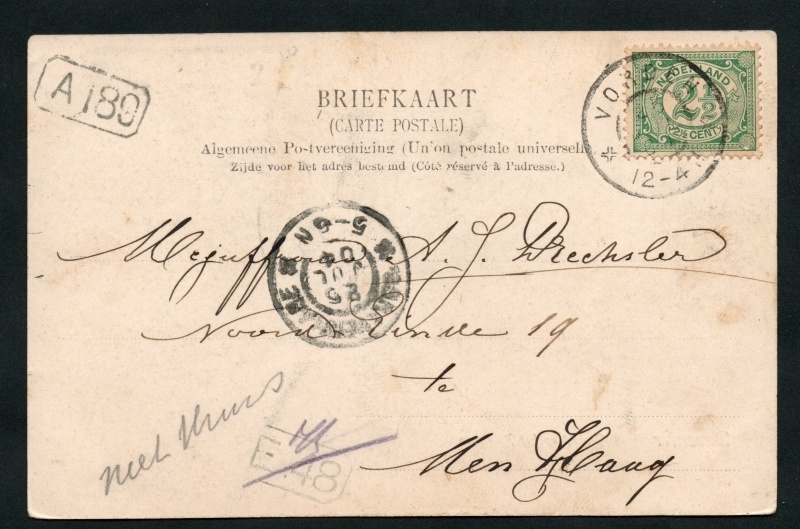 A 180
BRIEFKAART
(CARTE POSTALE)
Algemeene Postvereeniging (Union postale universelle)
Zijde voor het adres bestemd (Côté réservé à l'adresse.)
NEDERLAND
2½
2½ CENT
12-4
5-6 N
25
JUL
04
Mejuffrouw A. J. Drechsler
Noord Einde 19
te
Den Haag
niet thuis
E 48